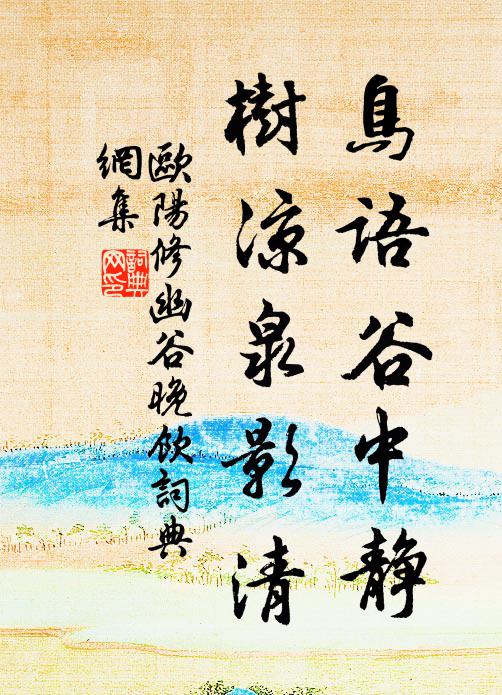 鳥語谷中静
樹凉泉影清
歐陽修幽谷晚飲詞典
網集
詞典
网印